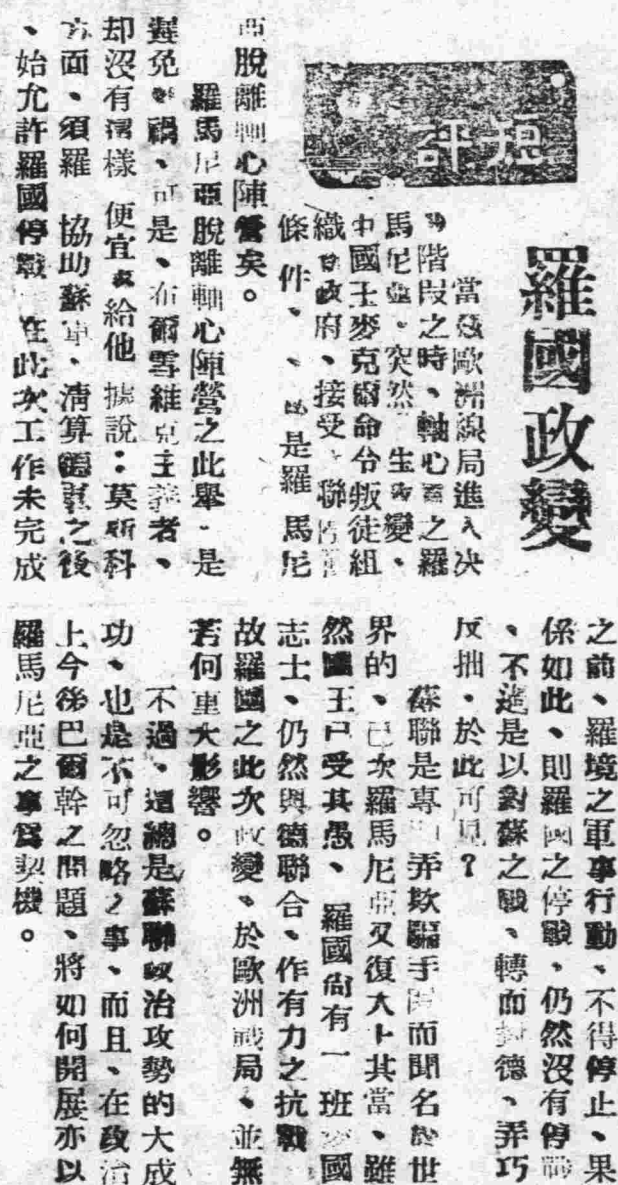 短評
羅國政變
當茲歐洲線局進入决
階段之時、軸心國之羅
馬尼亞、突然 生政變、
中國王麥克爾命令叛徒組
織 政府、接受 聯
條件、、 是羅 馬尼
亞脫離軸心陣營矣。
羅馬尼亞脫離軸心陣營之此舉、是
避免 禍、可是、布爾雪維克主義者、
却沒有這樣 便宜 給他 據說：莫斯科
方面、須羅 協助蘇軍、清算德軍之後
、始允許羅國停戰 在此次工作未完成
之前、羅境之軍事行動、不得停止、果
係如此、則羅國之停戰、仍然沒有停戰
、不過是以對蘇之戰、轉而對德、弄巧
反拙、於此可見？
蘇聯是專 弄欺騙手 而聞名於世
界的、已次羅馬尼亞又復大上其當、雖
然國王已受其愚、 羅國尚有一班愛國
志士、仍然與德聯合、作有力之抗戰
故羅國之此次政變、於歐洲戰局、並無
若何重大影響。
不過、這總是蘇聯政治攻勢的大成
功、也是不可忽略之事、而且、在政治
上今後巴爾幹之問題、將如何開展亦以
羅馬尼亞之事為契機。